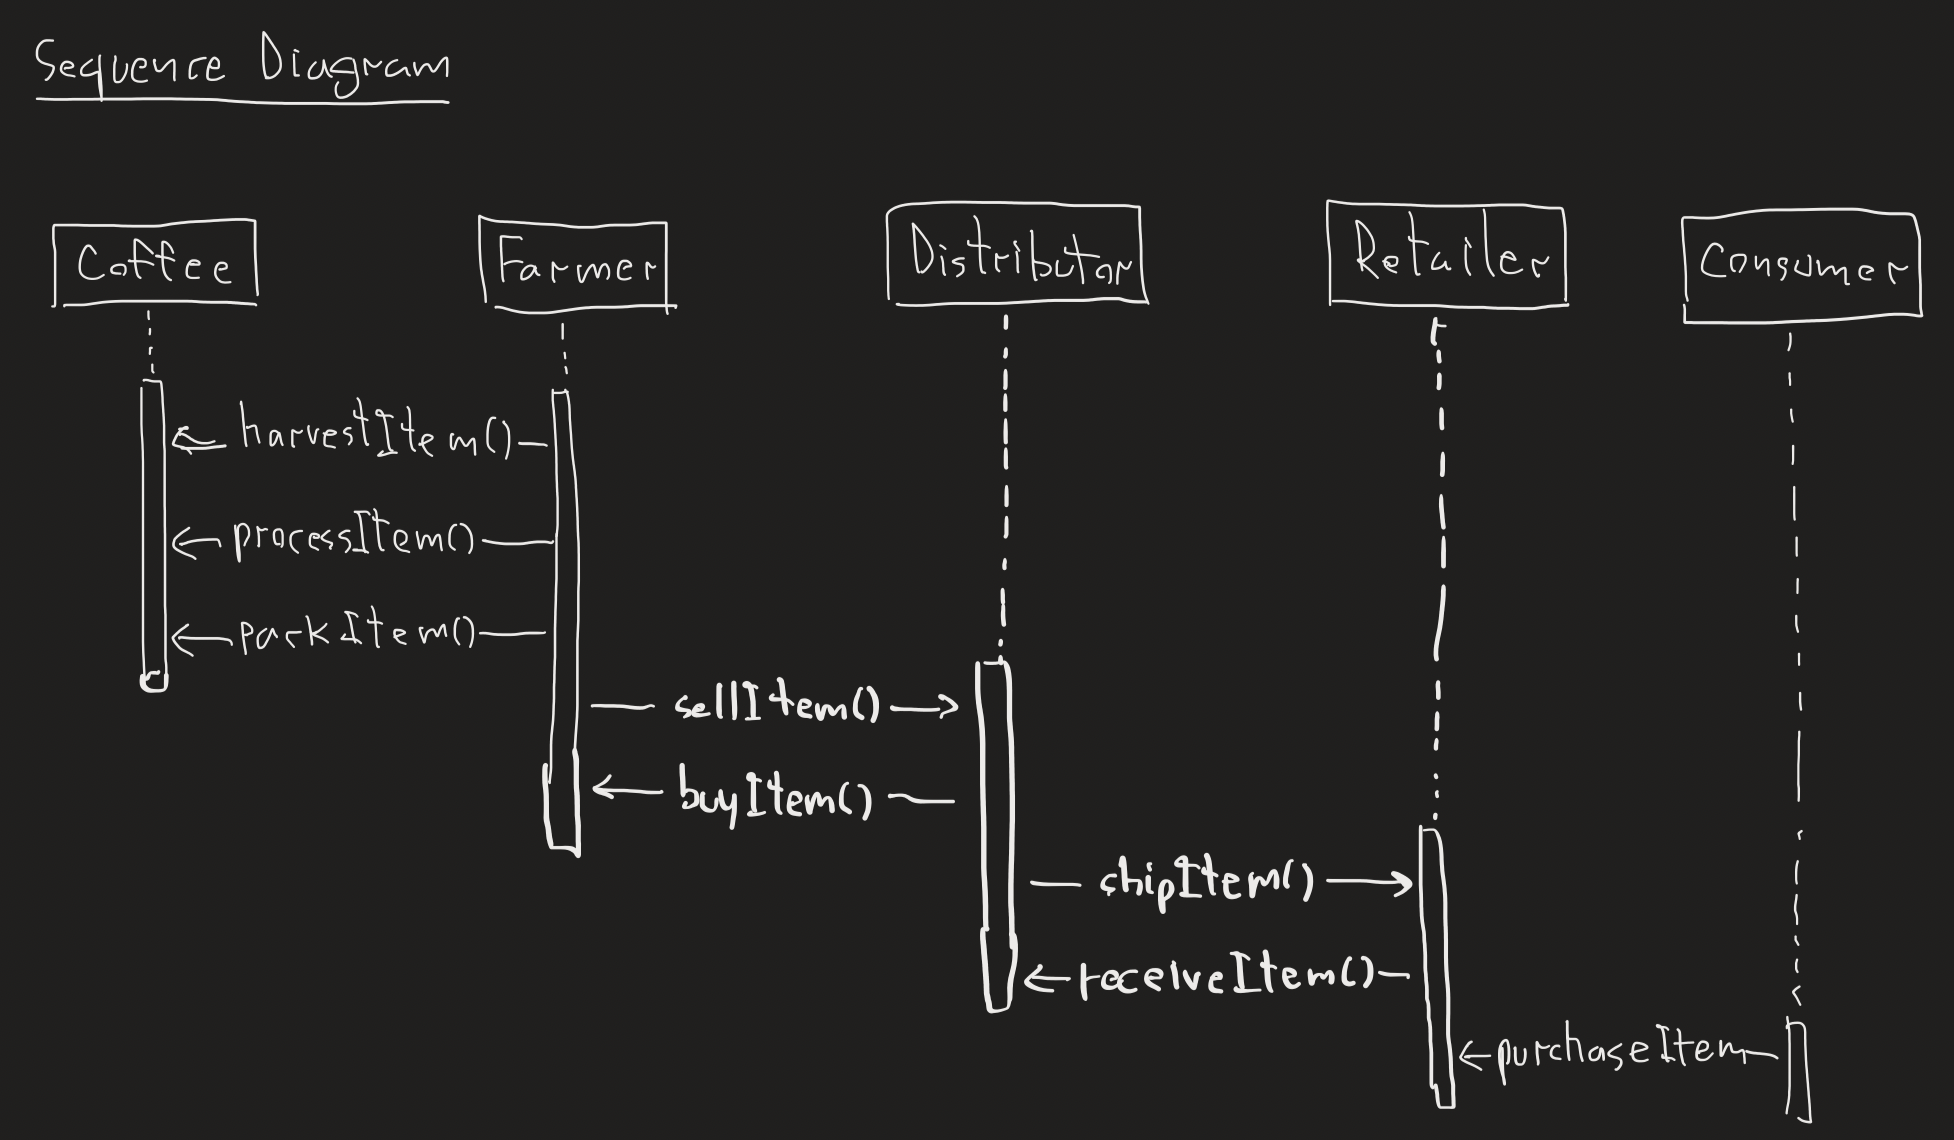 Sequence Diagram
Coffee
Farmer
Distributor
Retailer
Consumer
harvestItem()
processItem()
packItem()
sellItem()
buyItem()
shipItem()
receiveItem()
purchaseItem